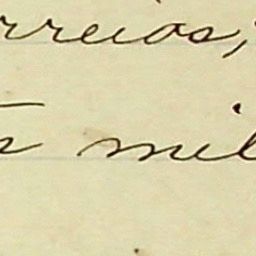 rreios,
mil